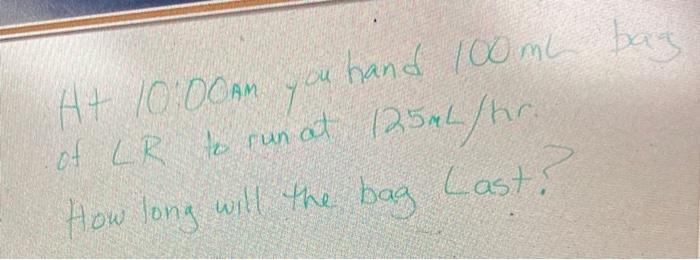 At 10:00AM you hand 100 mL bag
of LR to run at 125mL/hr.
How long will the bag Last?